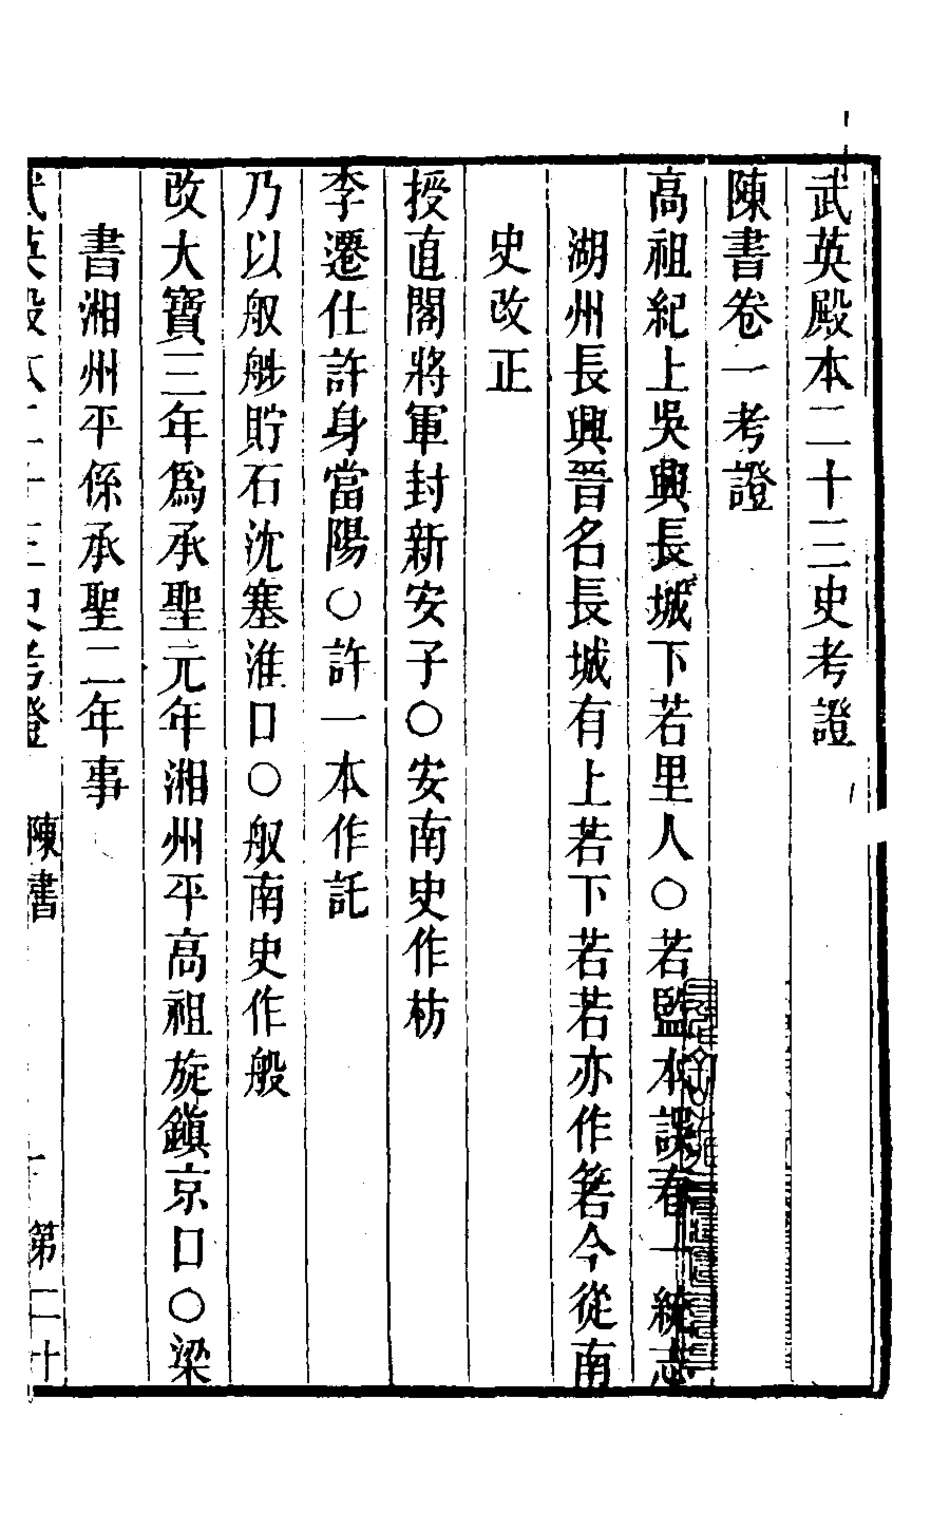 武英殿本二十三史考證
陳書卷一考證
高祖紀上吳興長城下若里人○若監本誤春一統志
湖州長興晉名長城有上若下若若亦作箬今從南
史改正
授直閣將軍封新安子○安南史作枋
李遷仕許身當陽○許一本作託
乃以舣𦪇貯石沈塞淮口○舣南史作般
改大寶三年爲承聖元年湘州平高祖旋鎭京口○梁
書湘州平係承聖二年事
武英殿本二十三史考證 陳書 一 第二十